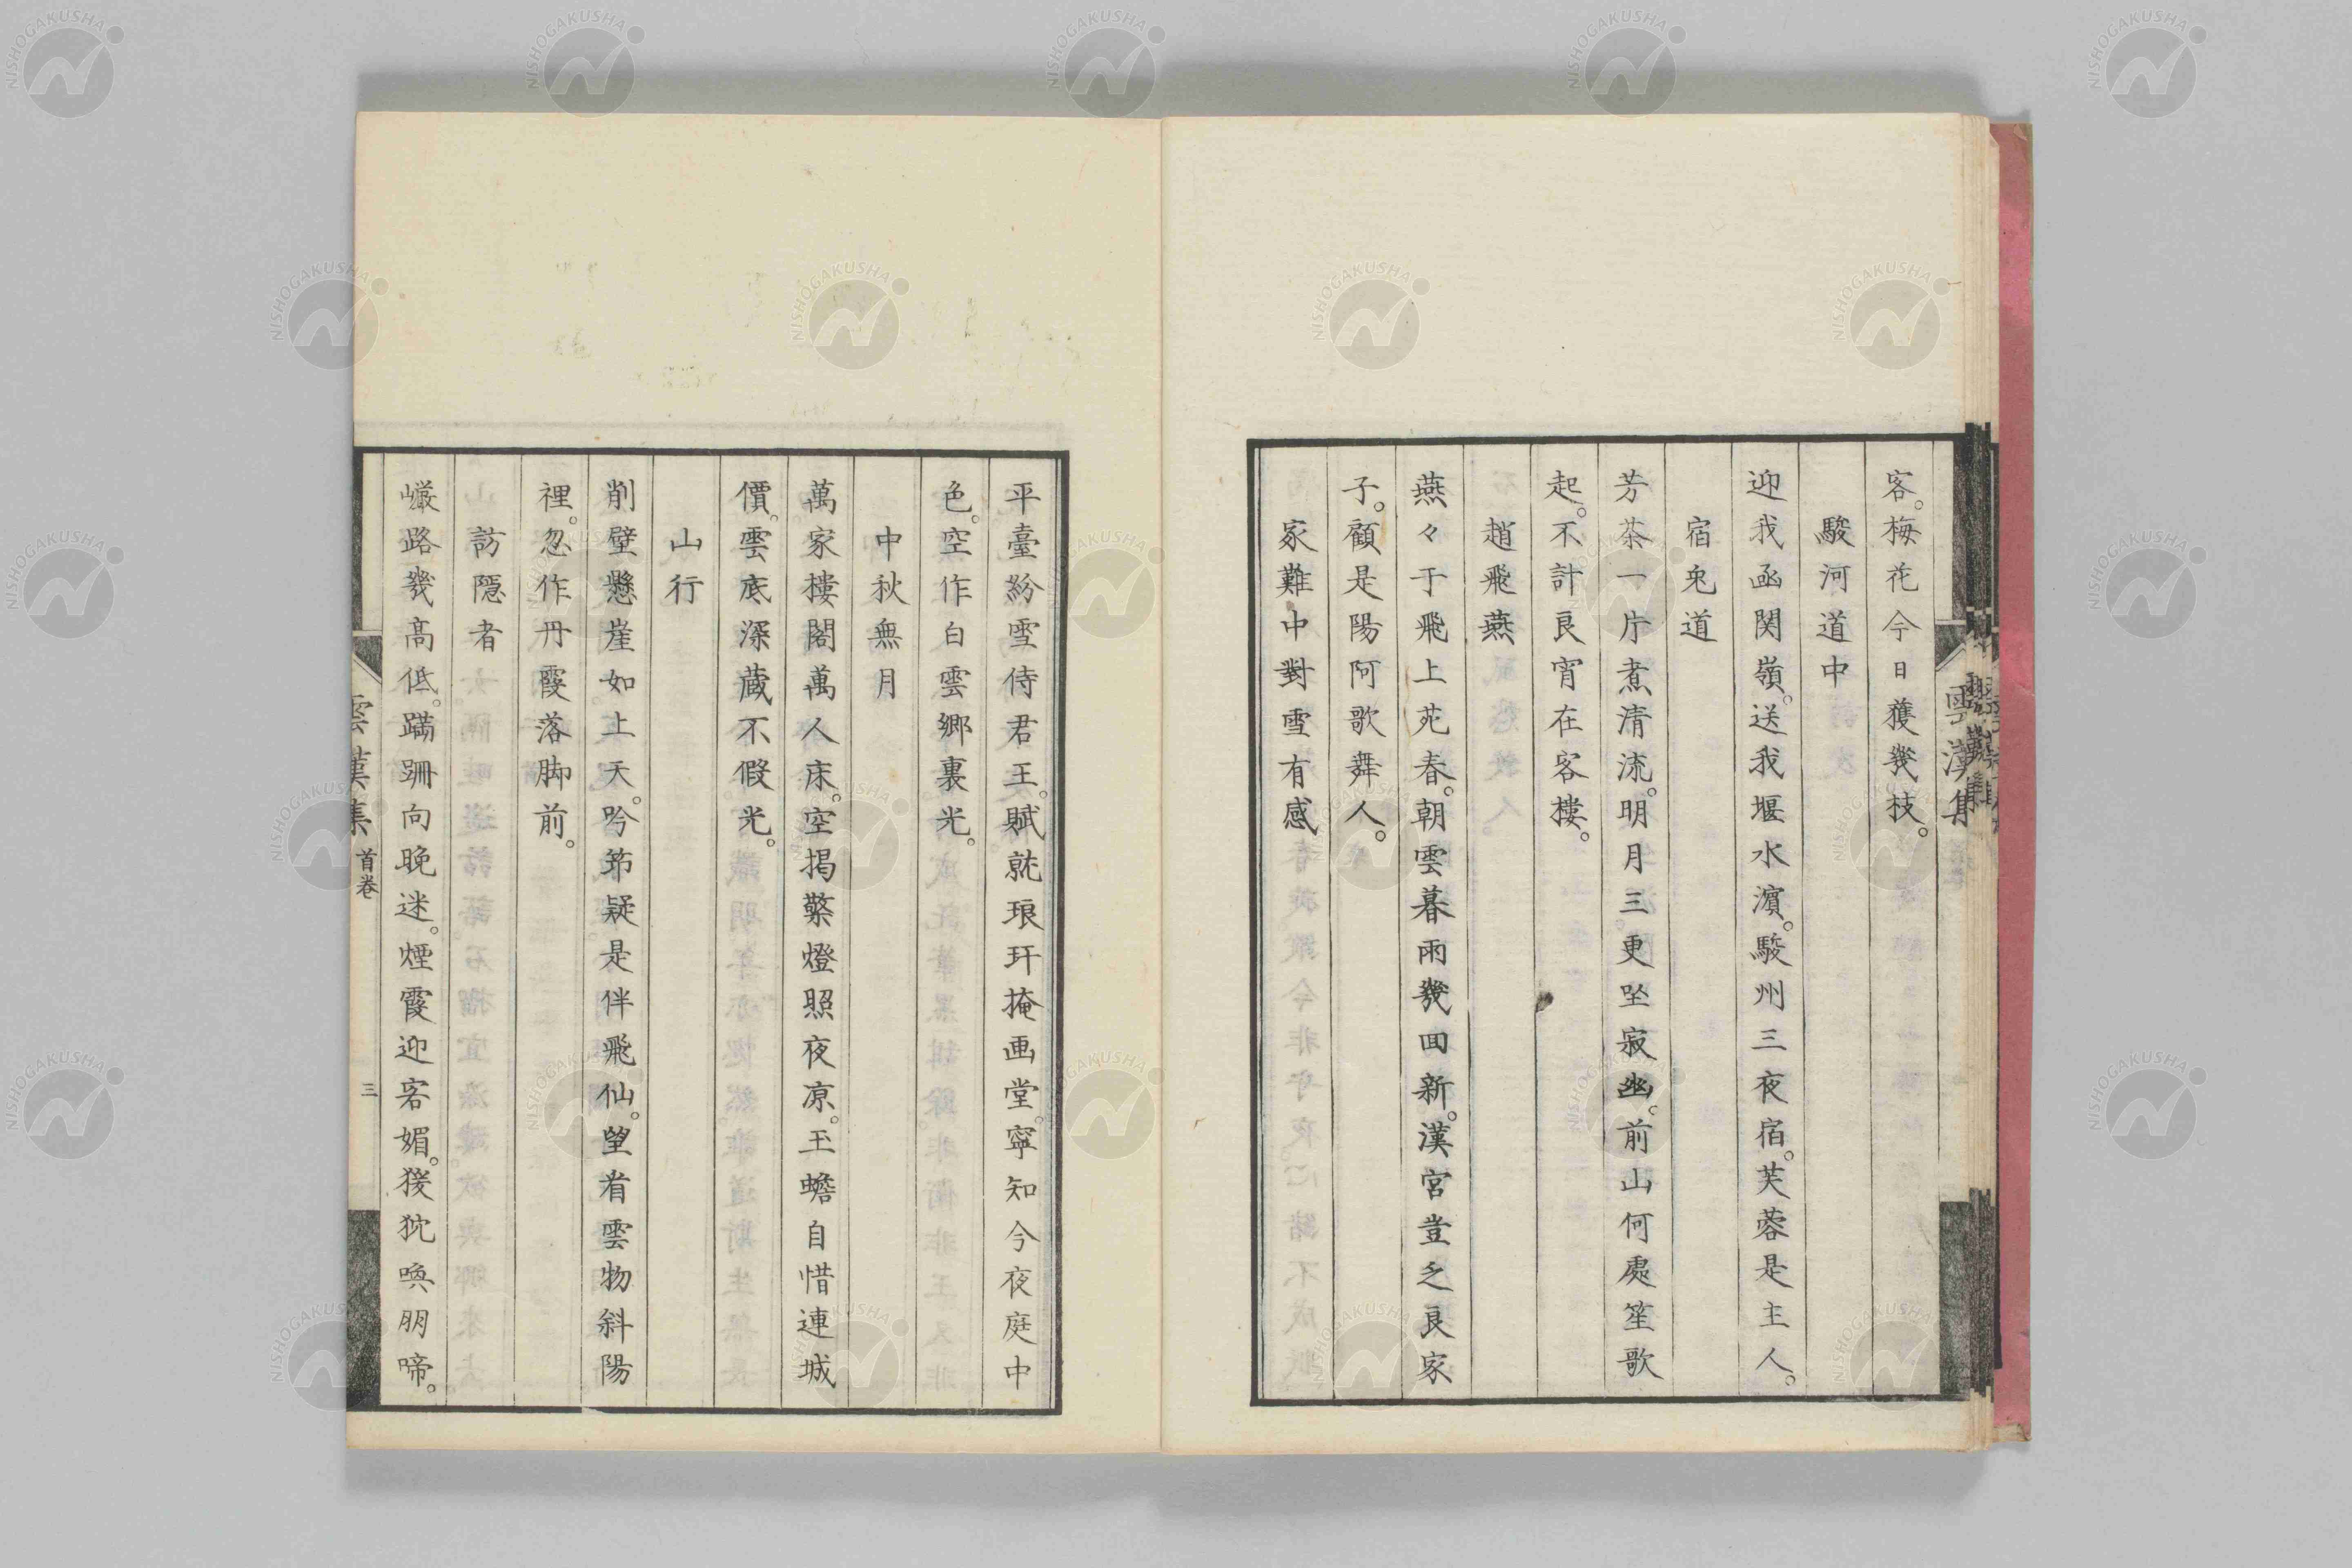 客。梅花今日獲幾枝。
駿河道中
迎我函関嶺。送我堰水濵。駿州三夜宿。芙蓉是主人。
宿兎道
芳茶一片煮清流。明月三更坐寂幽。前山何處笙歌
起。不計良宵在客樓。
趙飛燕
燕々于飛上苑春。朝雲暮雨幾回新。漢宮豈乏良家
子。顧是陽阿歌舞人。
家難中對雪有感
平臺紛雪侍君王。賦就琅玕掩画堂。寧知今夜庭中
色。空作白雲鄉裏光。
中秋無月
萬家樓閣萬人床。空掲檠燈照夜凉。玉蟾自惜連城
價。雲底深蔵不假光。
山行
削壁懸崖如上天。吟筇疑是伴飛仙。望看雲物斜陽
裡。忽作丹霞落脚前。
訪隠者
巗路幾髙低。蹣跚向晚迷。煙霞迎客媚。猨狖喚朋啼。
雲漢集
首巻
三
雲漢集
NISHOGAKUSHA